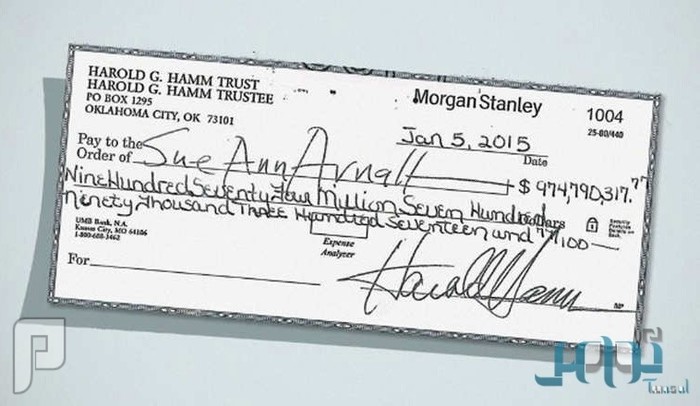 HAROLD G. HAMM TRUST
HAROLD G. HAMM TRUSTEE
PO BOX 1295
OKLAHOMA CITY, OK 73101
MorganStanley
1004
25-80/440
Jan 5, 2015
Date
Pay to the
Order of Sue Ann Arnall $ 974,790,317.77
Nine Hundred Seventy Four Million Seven Hundred Dollars
Ninety Thousand Three Hundred Seventeen and 77/100
UMB Bank, N.A.
Kansas City, MO 64106
1-800-688-3462
Expense
Analyzer
For
Harold Hamm
MP